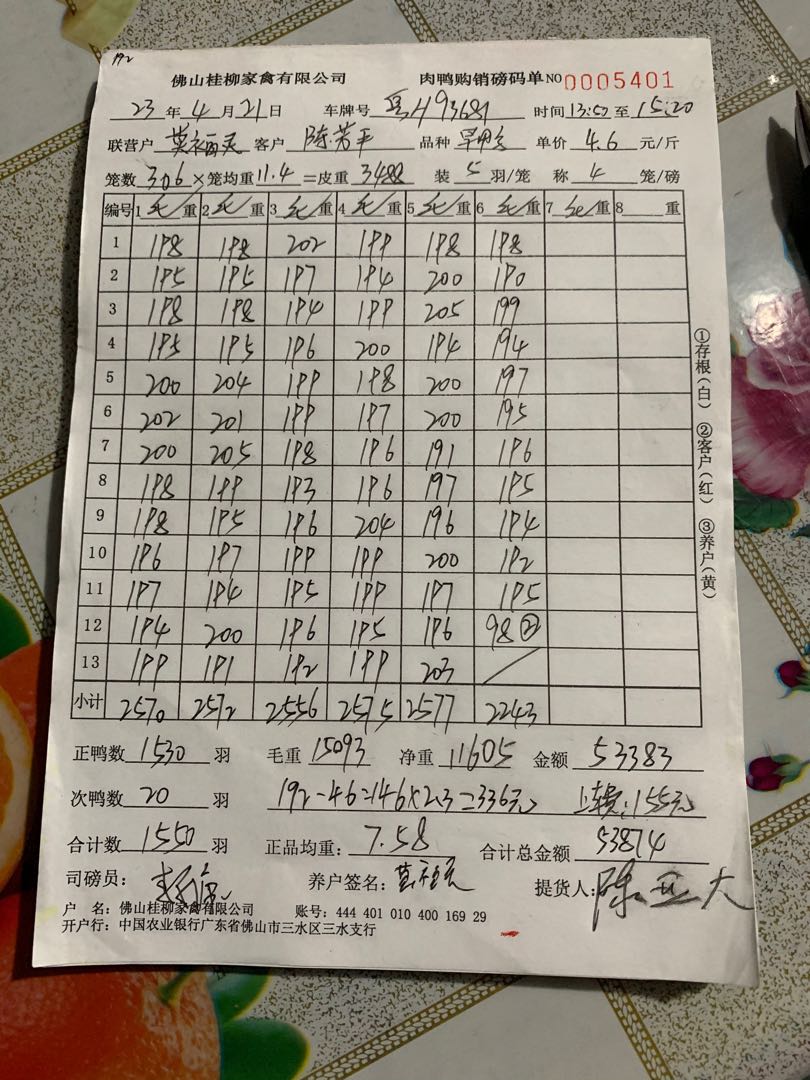 192
佛山桂柳家禽有限公司 肉鸭购销磅码单 NO 0005401
23 年 4 月 21 日 车牌号 时间 13:50 至 15:20
联营户 客户 陈芳平 品种 单价 4.6 元/斤
笼数 306 × 笼均重 11.4 = 皮重 3488 装 5 羽/笼 称 4 笼/磅
编号 1 毛/重 2 毛/重 3 毛/重 4 毛/重 5 毛/重 6 毛/重 7 毛/重 8 重
1 198 198 202 199 198 198
2 195 195 197 194 200 190
3 198 198 194 199 205 199
4 195 195 196 200 194 194
5 200 204 199 198 200 197
6 202 201 199 197 200 195
7 200 205 198 196 191 196
8 198 199 193 196 197 195
9 198 195 196 204 196 194
10 196 197 199 199 200 192
11 197 194 195 199 197 195
12 194 200 196 195 196 98 ②
13 199 191 192 199 203 /
小计 2570 2572 2556 2575 2577 2243
正鸭数 1530 羽 毛重 15093 净重 11605 金额 53383
次鸭数 20 羽 192-46=146×2.3=336元 上车费:155元
合计数 1550 羽 正品均重: 7.58 合计总金额 53874
司磅员: 养户签名: 提货人: 陈亚大
户 名: 佛山桂柳家禽有限公司 账号: 444 401 010 400 169 29
开户行: 中国农业银行广东省佛山市三水区三水支行
①存根(白) ②客户(红) ③养户(黄)